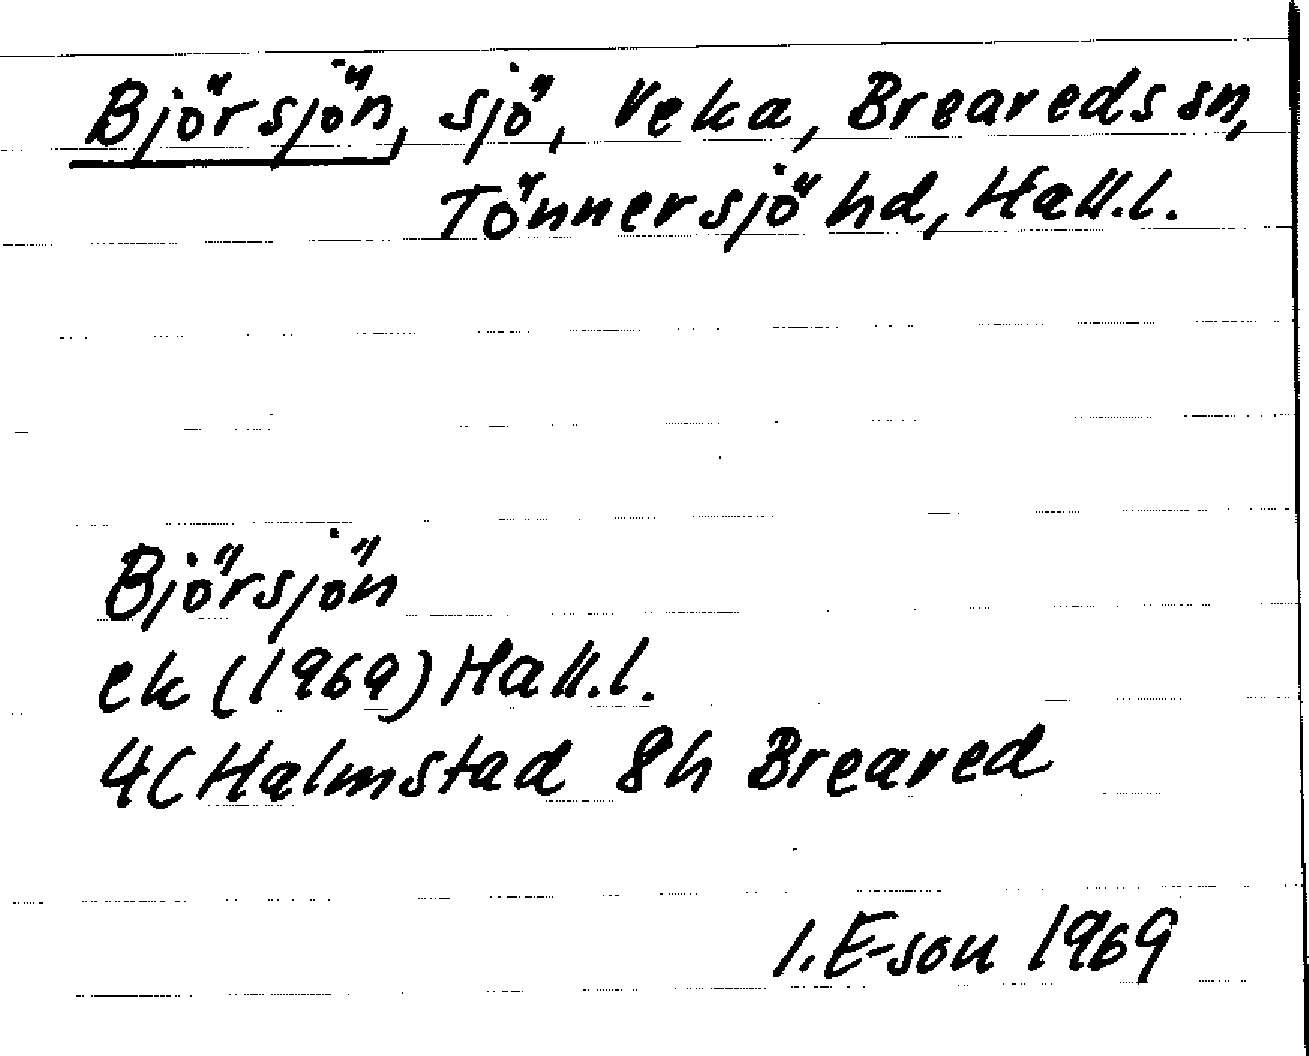 Björsjön, sjö, Veka, Breareds sn,
Tönnersjö hd, Hall.l.
Björsjön
ek (1969) Hall.l.
4C Halmstad 8h Breared
I. E-son 1969